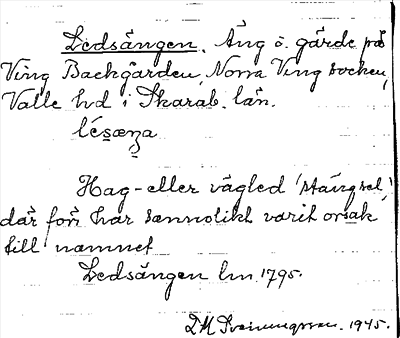 Ledsängen. Äng o. gärde på
Ving Backgården, Norra Ving socken,
Valle hd i Skarab. län.
lésæŋa
Hag- eller vägled 'stängsel'
där förr har sannolikt varit orsak
till namnet
Ledsängen lm 1795.
1945.